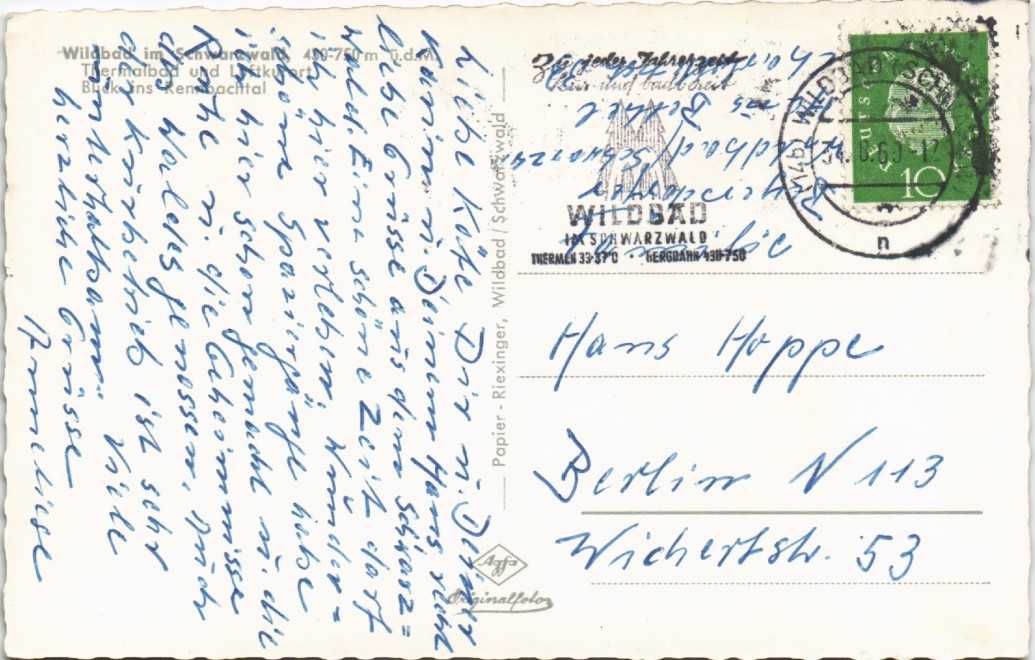 Wildbad im Schwarzwald, 430-750 m ü.d.M.
Thermalbad und Luftkurort
Blick ins Rennbachtal
Liebe Käte, Dir u. Deiner
Karin u. Deinem Hans, recht
liebe Grüsse aus dem Schwarz=
wald. Eine schöne Zeit darf
ich hier verleben, wunder=
schöne Spaziergänge habe
ich hier schon gemacht u. die
Ruhe u. die Geheimnisse
des Waldes genossen. Auch
der Kurbetrieb ist sehr
unterhaltsam. Viele
herzliche Grüsse
Anneliese
Papier-Riexinger, Wildbad/Schwarzwald
Agfa
Originalfoto
Zu jeder Jahreszeit
WILDBAD
IM SCHWARZWALD
THERMEN 33-37°C · BERGBAHN 430-750
WILDBAD (SCHW
10
Hans Hoppe
Berlin N 113
Wichertstr. 53